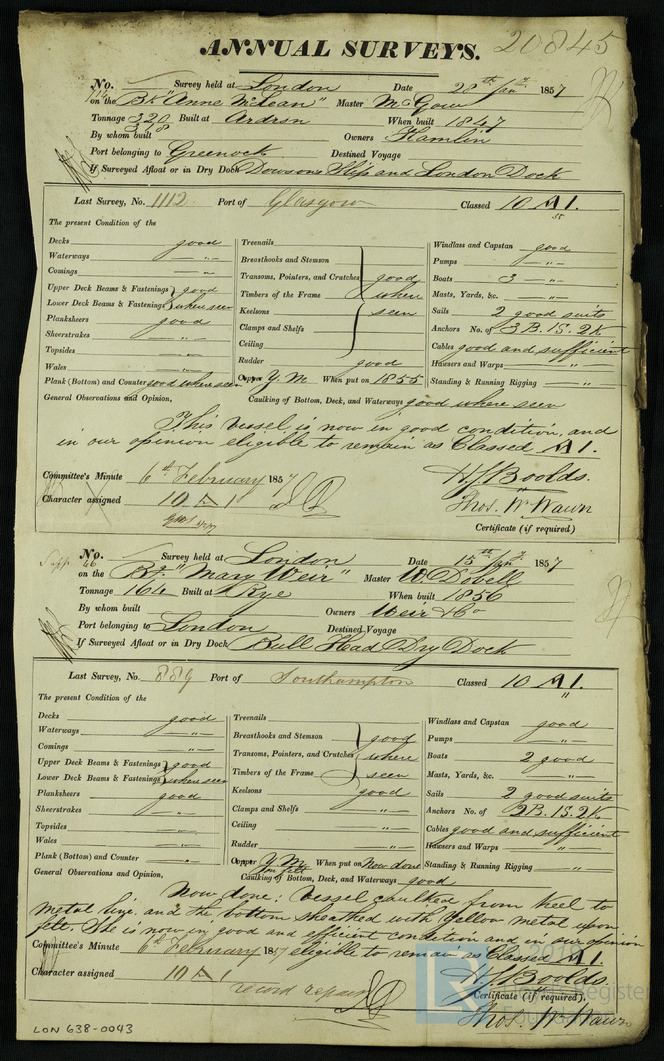 ANNUAL SURVEYS. 20845
No. Survey held at London Date 28th Jany 1857
on the Bk "Anne McLean" Master McGow
Tonnage 320 318 Built at Ardrsn When built 1847
By whom built Owners Hamlin
Port belonging to Greenock Destined Voyage
If Surveyed Afloat or in Dry Dock Dowsons Slip and London Dock
Last Survey, No. 1112 Port of Glasgow Classed 10 A1.
55
The present Condition of the
Decks good Treenails Windlass and Capstan good
Waterways " Breasthooks and Stemson Pumps "
Comings " Transoms, Pointers, and Crutches good Boats 3 "
Upper Deck Beams & Fastenings good Timbers of the Frame where Masts, Yards, &c. "
Lower Deck Beams & Fastenings where seen Keelsons seen Sails 2 good suits
Planksheers good Clamps and Shelfs Anchors No. of 3B. 1S. 2K
Sheerstrakes " Ceiling Cables good and sufficient
Topsides " Rudder good Hawsers and Warps "
Wales " Copper Y.M When put on 1855 Standing & Running Rigging "
Plank (Bottom) and Counter good where seen
General Observations and Opinion, Caulking of Bottom, Deck, and Waterways good where seen
This vessel is now in good condition, and
in our opinion eligible to remain as Classed A1.
Committee's Minute 6th February 1857 H.J. Boolds.
Character assigned 10 A 1 Thos. Wm Wawn
Certificate (if required)
No. 46 Survey held at London Date 15th Jany 1857
on the Bg. "Mary Weir" Master W. Dobell
Tonnage 164 Built at Rye When built 1856
By whom built Owners Weir & Co
Port belonging to London Destined Voyage
If Surveyed Afloat or in Dry Dock Bull Head Dry Dock
Last Survey, No. 889 Port of Southampton Classed 10 A1.
"
The present Condition of the
Decks good Treenails Windlass and Capstan good
Waterways " Breasthooks and Stemson good Pumps "
Comings " Transoms, Pointers, and Crutches where Boats 2 good
Upper Deck Beams & Fastenings good Timbers of the Frame seen Masts, Yards, &c. "
Lower Deck Beams & Fastenings where seen Keelsons good Sails 2 good suits
Planksheers good Clamps and Shelfs " Anchors No. of 2B. 1S. 2K
Sheerstrakes " Ceiling " Cables good and sufficient
Topsides " Rudder " Hawsers and Warps "
Wales " Copper Y.M. on felt When put on Now done Standing & Running Rigging "
Plank (Bottom) and Counter "
General Observations and Opinion, Caulking of Bottom, Deck, and Waterways good
Now done: Vessel caulked from keel to
metal line. and the bottom sheathed with yellow metal upon
felt. She is now in good and efficient condition and in our opinion
Committee's Minute 6th February 1857 eligible to remain as Classed A1.
Character assigned 10 A 1 H.J. Boolds.
record repairs Certificate (if required).
Thos. Wm Wawn
LON 638-0043
Lloyd's Register
Foundation